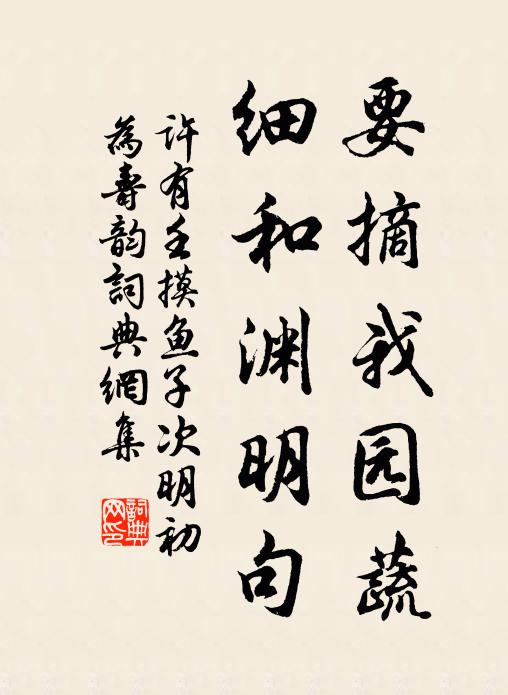 要摘我园蔬
细和渊明句
许有壬摸鱼子次明初
為壽韵詞典網集
詞典网印